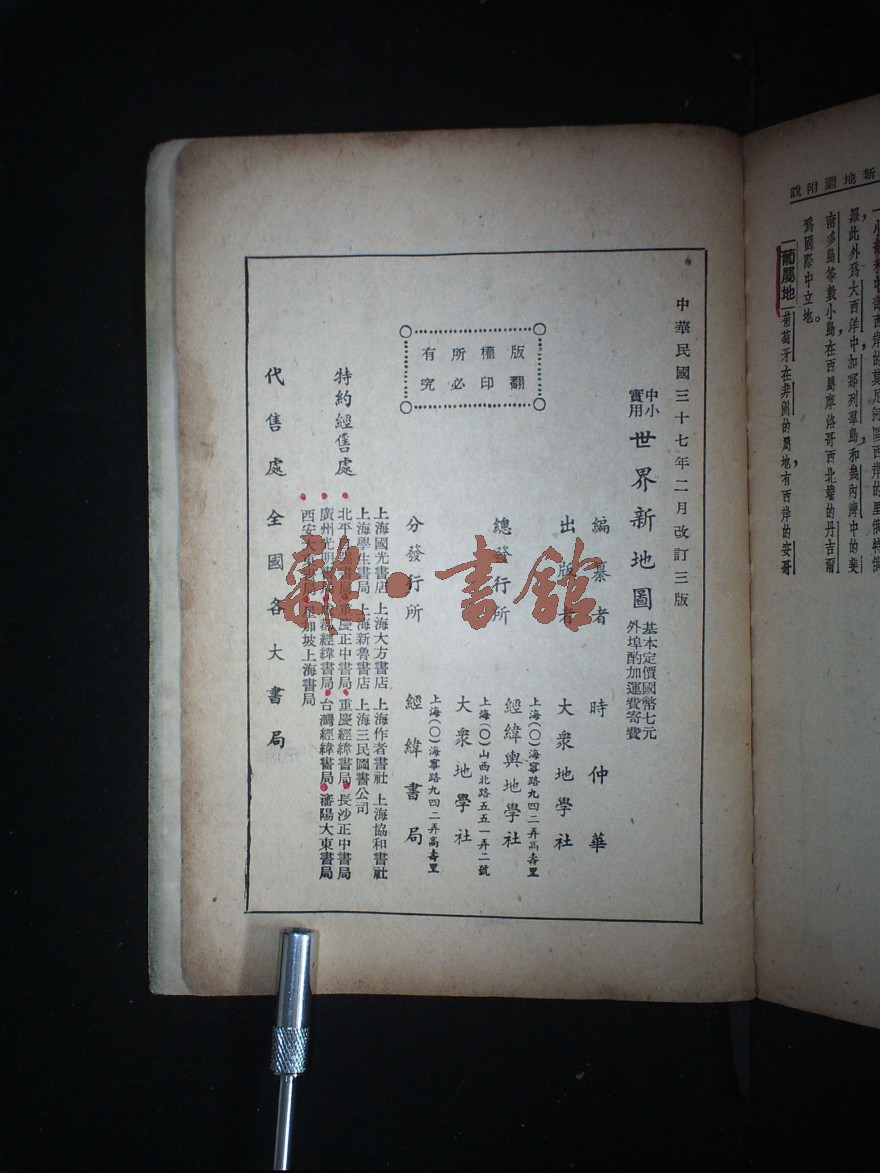 新地圖附說
羅此外爲大西洋中加那列羣島和幾內灣中的斐
南多島等數小島在西屬摩洛哥西北端的丹吉爾
爲國際中立地。
葡屬地 葡萄牙在非洲的屬地有西岸的安哥
中華民國三十七年二月改訂三版
中小實用 世界新地圖 基本定價國幣七元 外埠酌加運費寄費
編纂者 時仲華
出版者 大衆地學社
上海(〇)海寧路九四二弄高壽里
總發行所 經緯輿地學社
上海(〇)山西北路五五一弄二號
大衆地學社
上海(〇)海寧路九四二弄高壽里
分發行所 經緯書局
版權所有
翻印必究
特約經售處
上海國光書店 上海大方書店 上海作者書社 上海協和書社
上海學生書局 上海新魯書店 上海三民圖書公司
北平 書局 重慶正中書局 重慶經緯書局 長沙正中書局
廣州光明書局 成都經緯書局 台灣經緯書局 瀋陽大東書局
西安大東書局 星加坡上海書局
代售處 全國各大書局
雜·書館